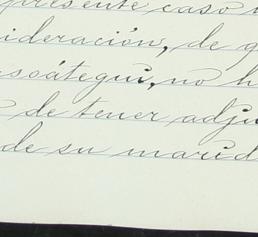 presente caso
ideración, de g
soátegui, no h
de tener adju
de su marid